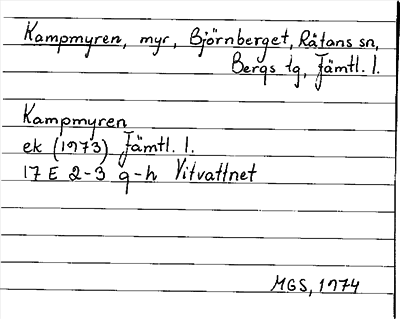 Kampmyren, myr, Björnberget, Råtans sn,
Bergs tg, Jämtl. l.
Kampmyren
ek (1973) Jämtl. l.
17 E 2-3 g-h Vitvattnet
MGS, 1974